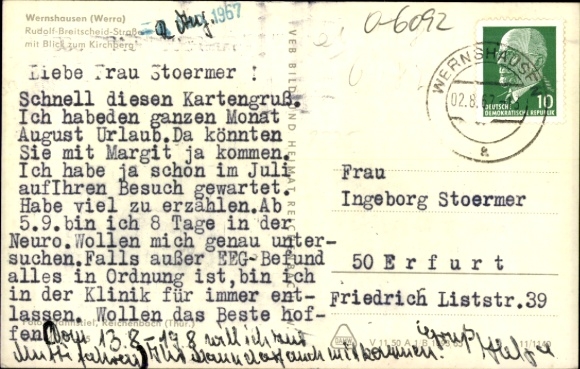 Wernshausen (Werra)
Rudolf-Breitscheid-Straße
mit Blick zum Kirchberg
Aug. 1967
0-6092
WERNSHAUSEN
02.8.
a
DEUTSCHE
DEMOKRATISCHE REPUBLIK
10
VEB BILD UND HEIMAT REICHENBACH
Liebe Frau Stoermer !
Schnell diesen Kartengruß.
Ich habeden ganzen Monat
August Urlaub.Da könnten
Sie mit Margit ja kommen.
Ich habe ja schon im Juli
aufIhren Besuch gewartet.
Habe viel zu erzählen.Ab
5.9.bin ich 8 Tage in der
Neuro.Wollen mich genau unter-
suchen.Falls außer EEG-Befund
alles in Ordnung ist,bin ich
in der Klinik für immer ent-
lassen. Wollen das Beste hof-
fen
Vom 13.8.-19.8 will ich mit
Mutti fahren
auch mitkommen.
Gruß Helga
Frau
Ingeborg Stoermer
50 Erfurt
Friedrich Liststr.39
Reichenbach (Vogtl.)